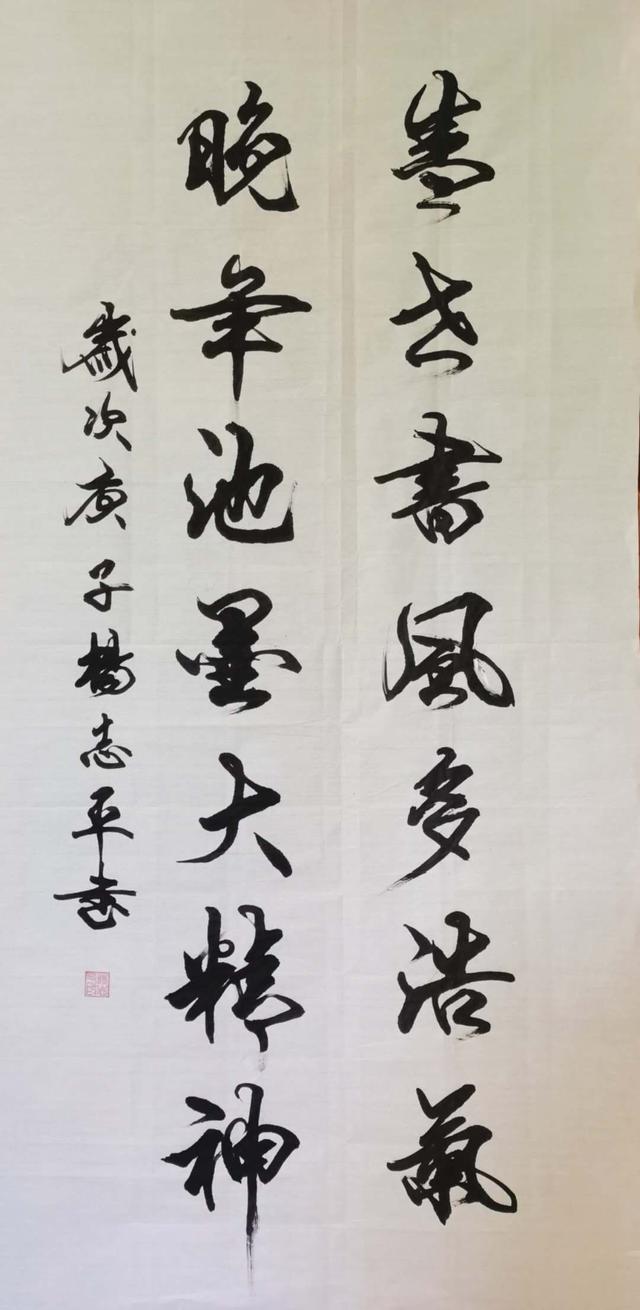 盖世書風多浩氣
晚年池墨大精神
歲次庚子楊志平書